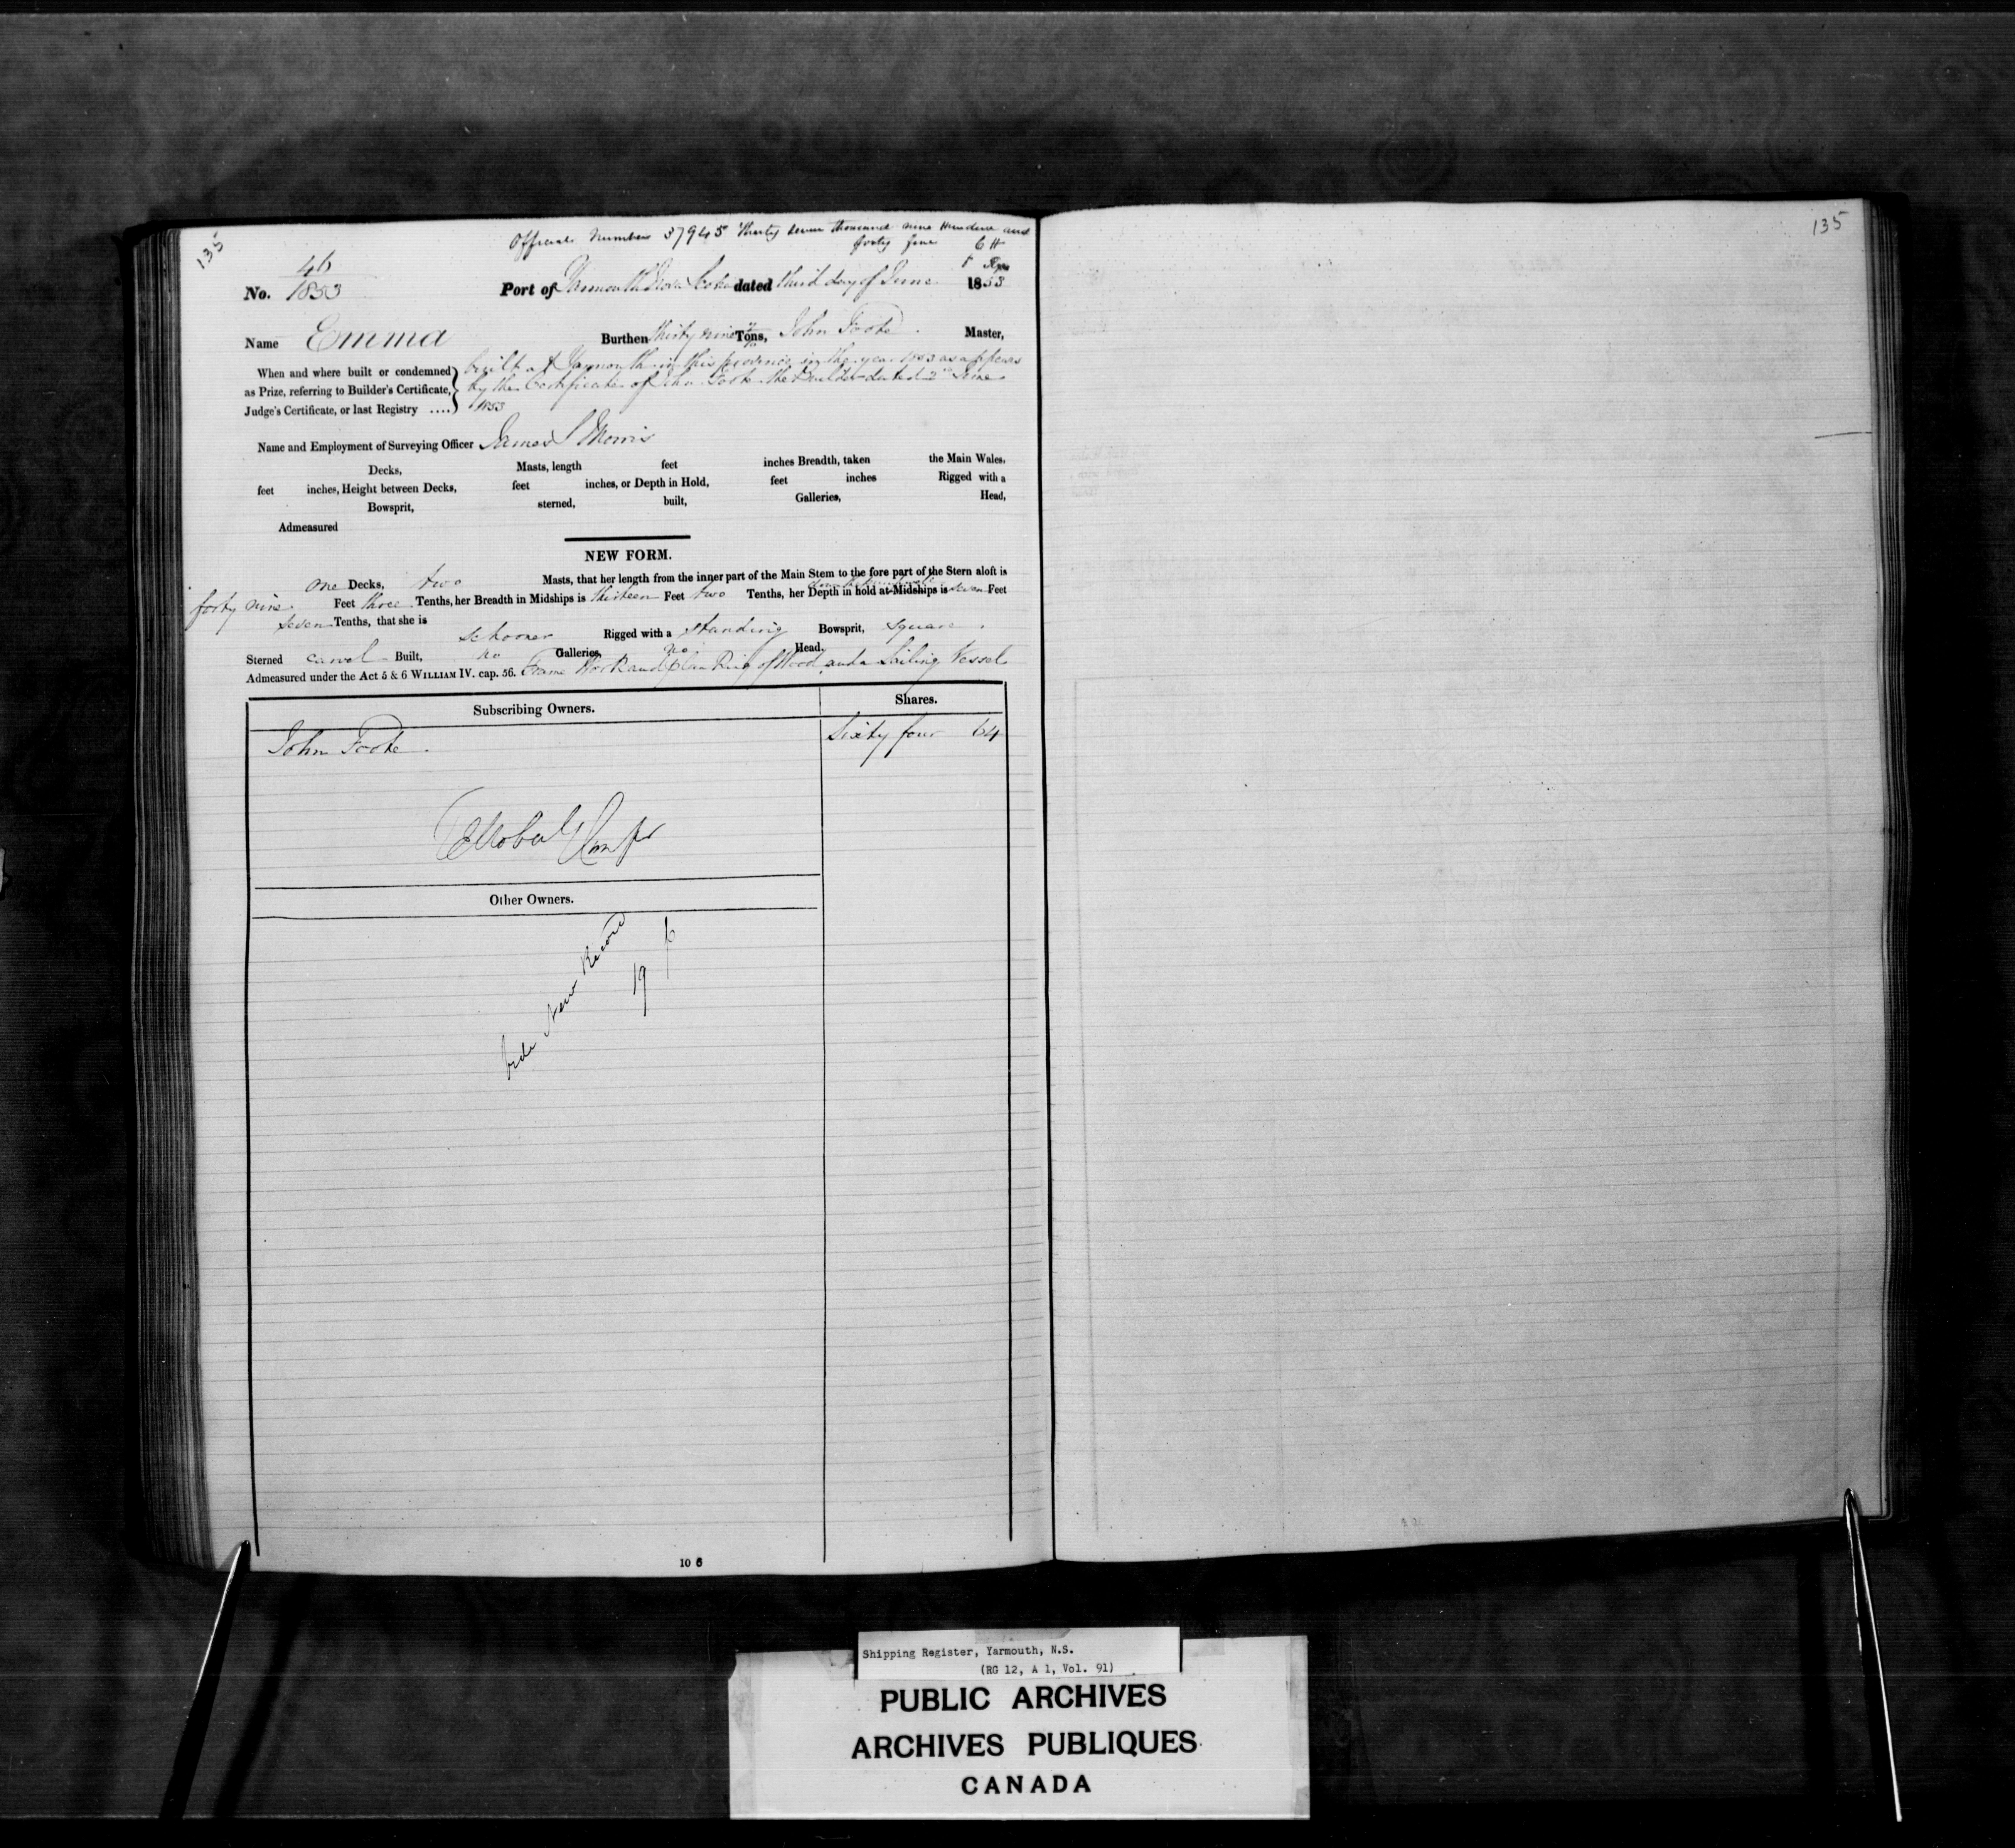 135
Official Number 37945 Thirty seven thousand nine Hundred and
forty five
No. 46
1853
Port of Yarmouth Nova Scotia dated third day of June 1853
Name Emma Burthen thirty nine Tons, John Foote Master,
When and where built or condemned
as Prize, referring to Builder's Certificate,
Judge's Certificate, or last Registry ....
built at Yarmouth in this province in the year 1853 as appears
by the Certificate of John Foote the Builder dated 2nd June
1853
Name and Employment of Surveying Officer James S Morris
Decks, Masts, length feet inches Breadth, taken the Main Wales,
feet inches, Height between Decks, feet inches, or Depth in Hold, feet inches Rigged with a
Bowsprit, sterned, built, Galleries, Head,
Admeasured
NEW FORM.
one Decks, two Masts, that her length from the inner part of the Main Stem to the fore part of the Stern aloft is
forty nine Feet three Tenths, her Breadth in Midships is thirteen Feet two Tenths, her Depth in hold at Midships is seven Feet
seven Tenths, that she is schooner Rigged with a standing Bowsprit, square
Sterned carvel Built, no Galleries, no Head,
Admeasured under the Act 5 & 6 WILLIAM IV. cap. 56. Frame Work and planking of Wood and a Sailing Vessel
Subscribing Owners. Shares.
John Foote Sixty four 64
Other Owners.
Vide New Record
19
10 6
135
Shipping Register, Yarmouth, N.S.
(RG 12, A 1, Vol. 91)
PUBLIC ARCHIVES
ARCHIVES PUBLIQUES
CANADA